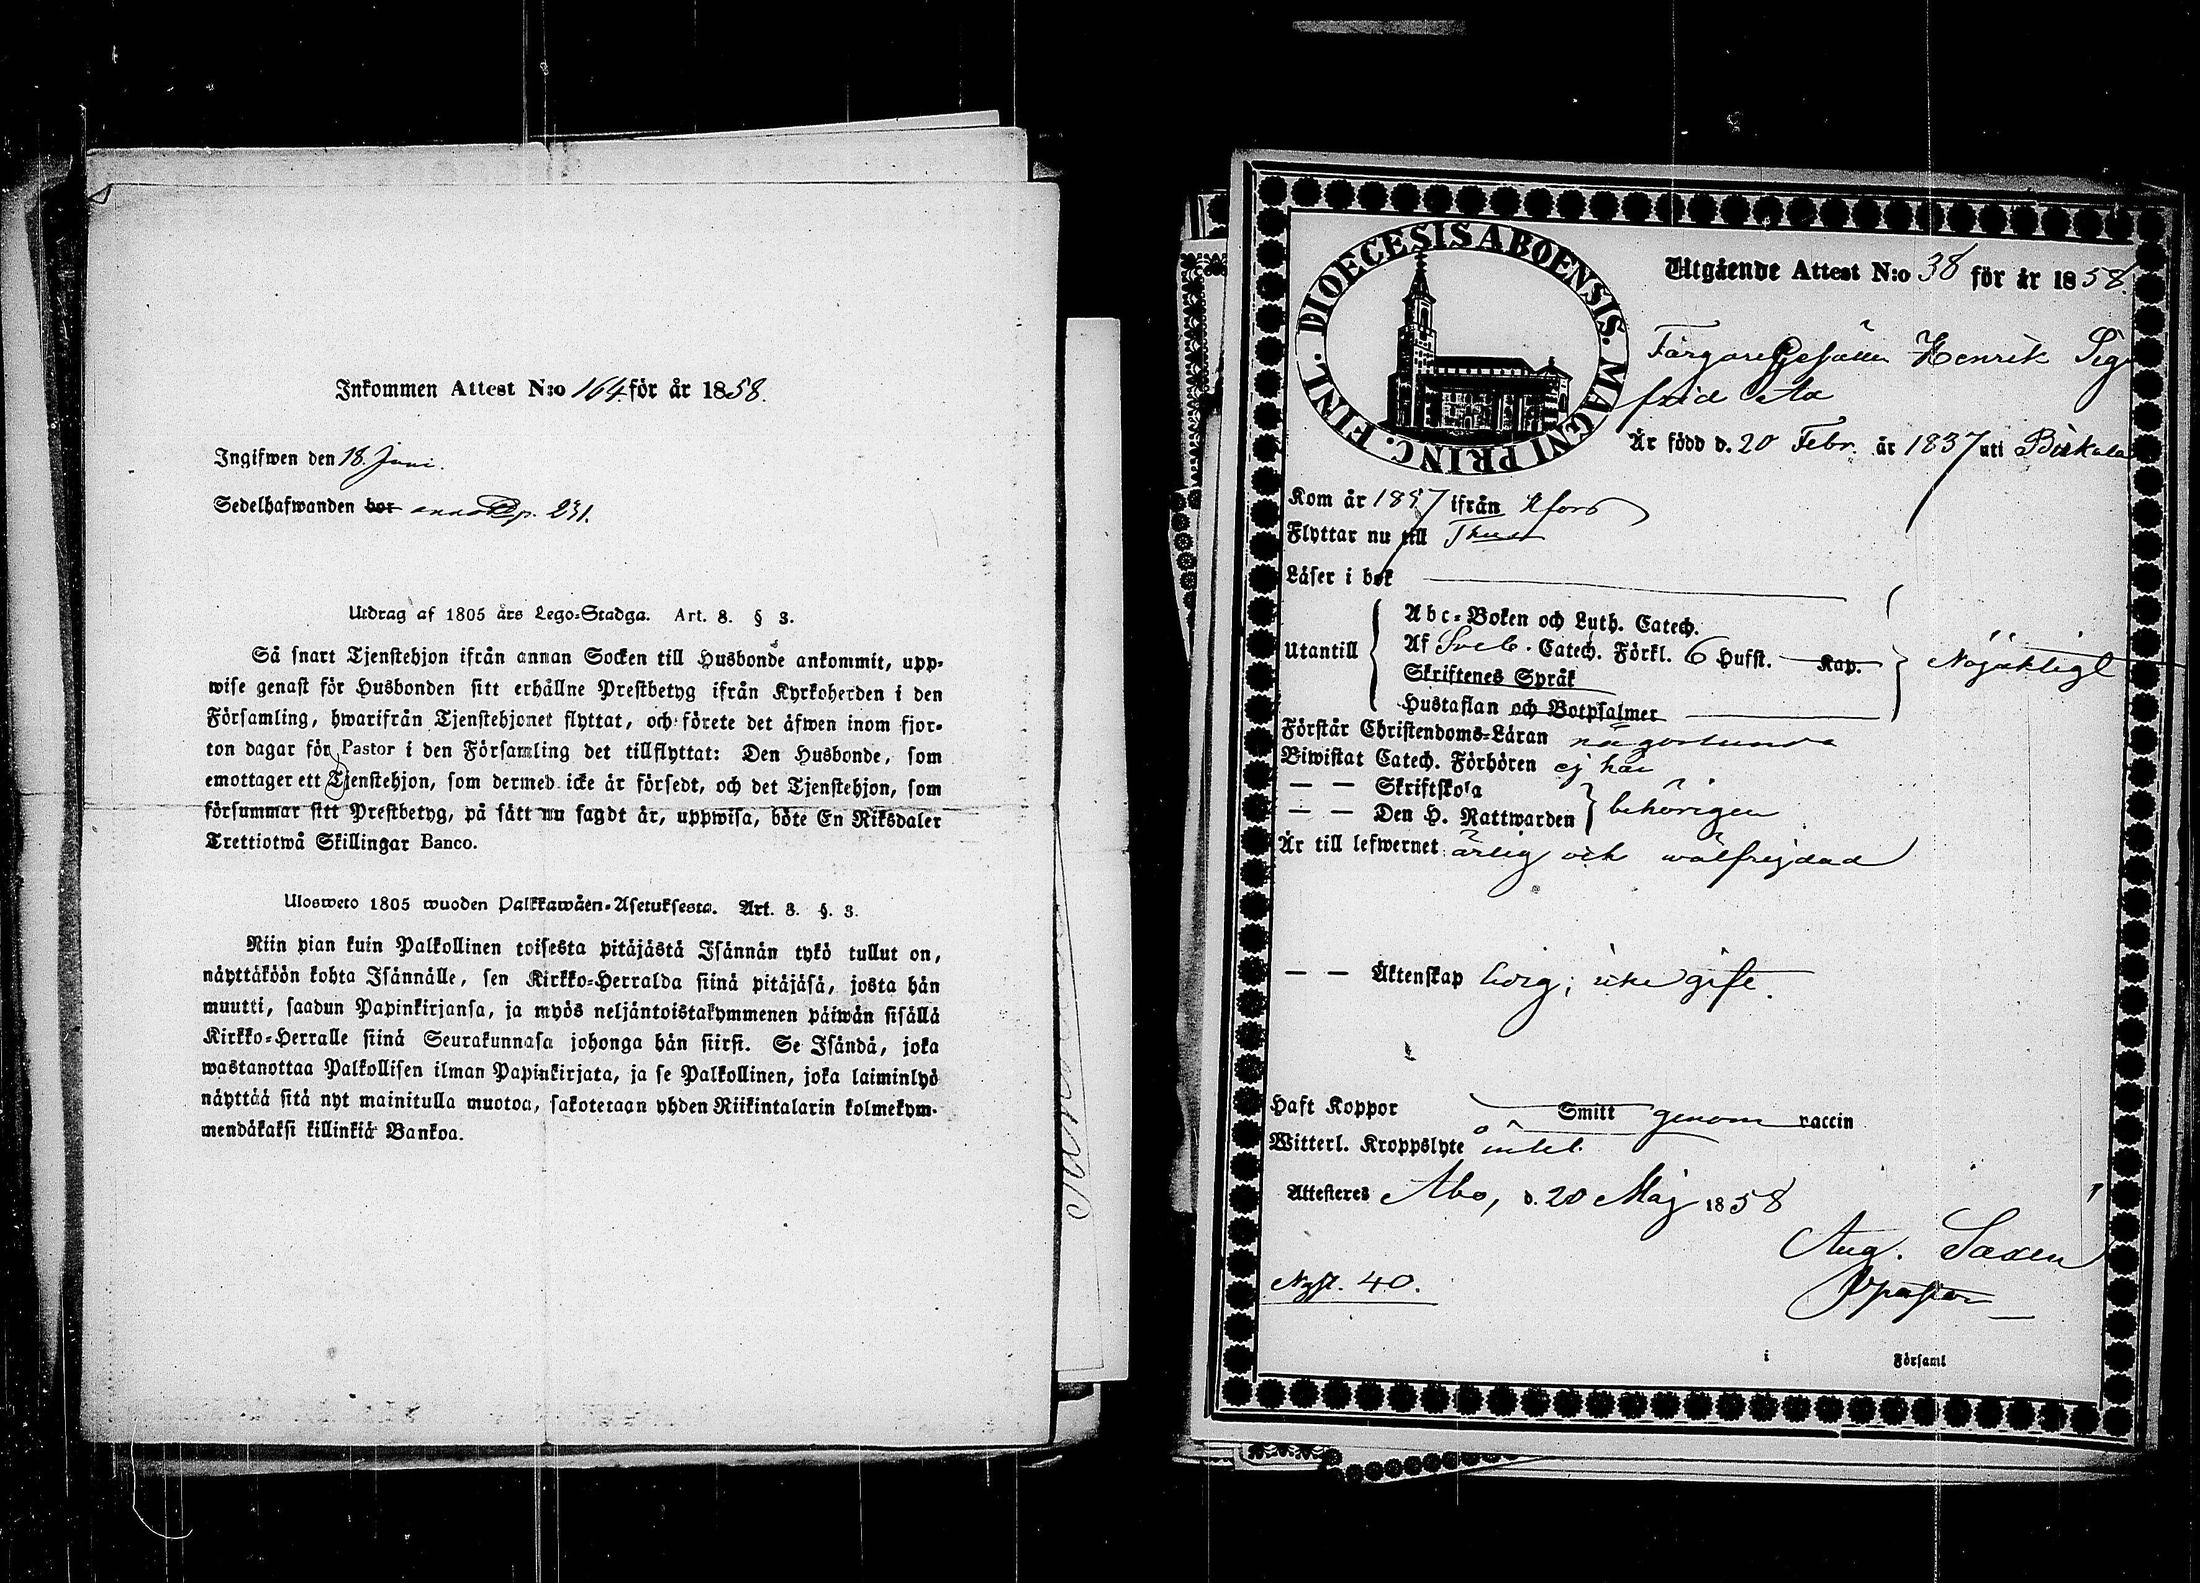 Inkommen Attest N:o 164 för år 1858.
Ingifwen den 18. Juni.
Sedelhafwanden bor p. 231.
Utdrag af 1805 års Lego-Stadga. Art. 8. § 3.
Så snart Tjenstehjon ifrån annan Socken till Husbonde ankommit, upp-
wise genast för Husbonden sitt erhållne Prestbetyg ifrån Kyrkoherden i den
Församling, hwarifrån Tjenstehjonet flyttat, och förete det äfwen inom fjor-
ton dagar för Pastor i den Församling det tillflyttat: Den Husbonde, som
emottager ett Tjenstehjon, som dermed icke är försedt, och det Tjenstehjon, som
försummar sitt Prestbetyg, på sätt nu sagdt är, uppwisa, böte En Riksdaler
Trettiotwå Skillingar Banco.
Ulosweto 1805 wuoden Palkkawäen-Asetuksesta. Art. 8. §. 3.
Niin pian kuin Palkollinen toisesta pitäjästä Isännän tykö tullut on,
näyttäköön kohta Isännälle, sen Kirkko-Herralda siinä pitäjäsä, josta hän
muutti, saadun Papinkirjansa, ja myös neljäntoistakymmenen päiwän sisällä
Kirkko-Herralle siinä Seurakunnasa johonga hän siirsi. Se Isändä, joka
wastanottaa Palkollisen ilman Papinkirjata, ja se Palkollinen, joka laiminlyö
näyttää sitä nyt mainitulla muotoa, sakotetaan yhden Riikintalarin kolmekym-
mendäkaksi killinkiä Bankoa.
DIOECESIS ABOENSIS. MAGNI PRINC. FINL.
Utgående Attest N:o 38 för år 1858.
Färgaregesällen Henrik Sig
frid
Är född d. 20 Febr. år 1837 uti Birkala
Kom år 1857 ifrån Hfors
Flyttar nu till Thus
Läser i bok
Utantill
Abc-Boken och Luth. Catech.
Af Sveb. Catech. Förkl. 6 Hufst. Kap.
Skriftenes Språk
Hustaflan och Botpsalmer
Nöjaktligt
Förstår Christendoms-Läran någorlunda
Biwistat Catech. Förhören ej här
— — Skriftskola
— — Den H. Nattwarden behörigen
Är till lefwernet ärlig och wälfrejdad
— — Äktenskap ledig; icke gift.
Haft Koppor Smitt genom vaccin
Witterl. Kroppslyte intet.
Attesteres Åbo, d. 20 Maj 1858
Aug. Saxen
Npst. 40.
i Församl